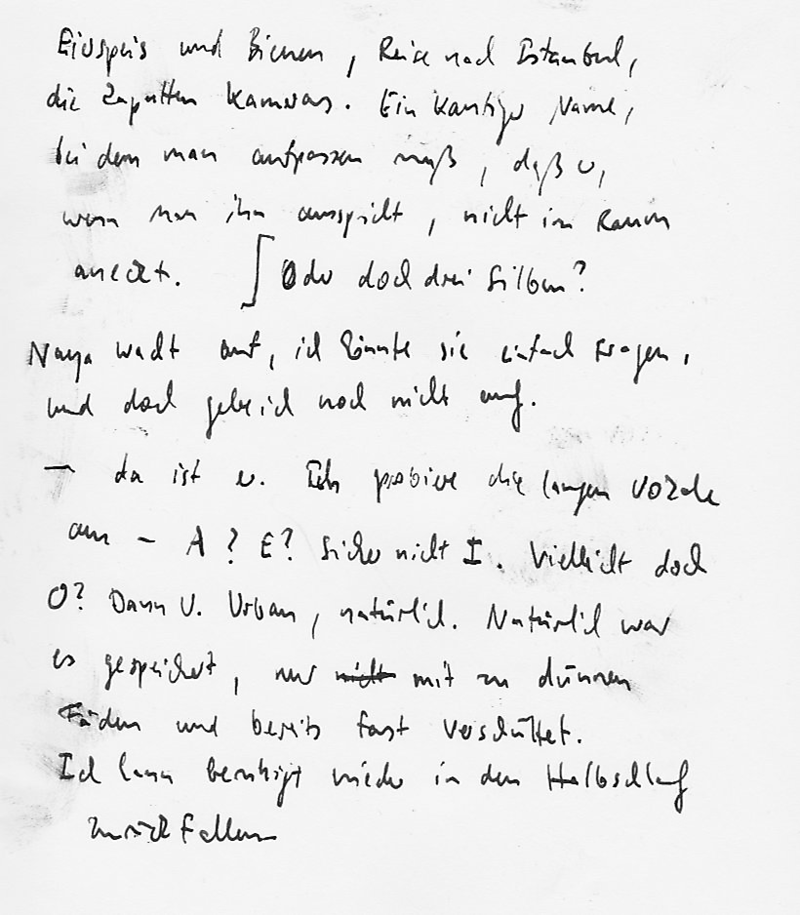 Eisspeis und Bienen, Reise nach Istanbul,
die kaputten Kameras. Ein kantiger Name,
bei dem man aufpassen muß, daß er,
wenn man ihn ausspricht, nicht im Raum
aneckt. Oder doch drei Silben?
Nanja wacht auf, ich könnte sie einfach fragen,
und doch gebe ich noch nicht auf.
– da ist er. Ich probiere die langen Vokale
an – A? E? Sicher nicht I. Vielleicht doch
O? Dann U. Urban, natürlich. Natürlich war
es gespeichert, nur nicht mit zu dünnen
Fäden und bereits fast verschüttet.
Ich kann beruhigt wieder in den Halbschlaf
zurückfallen